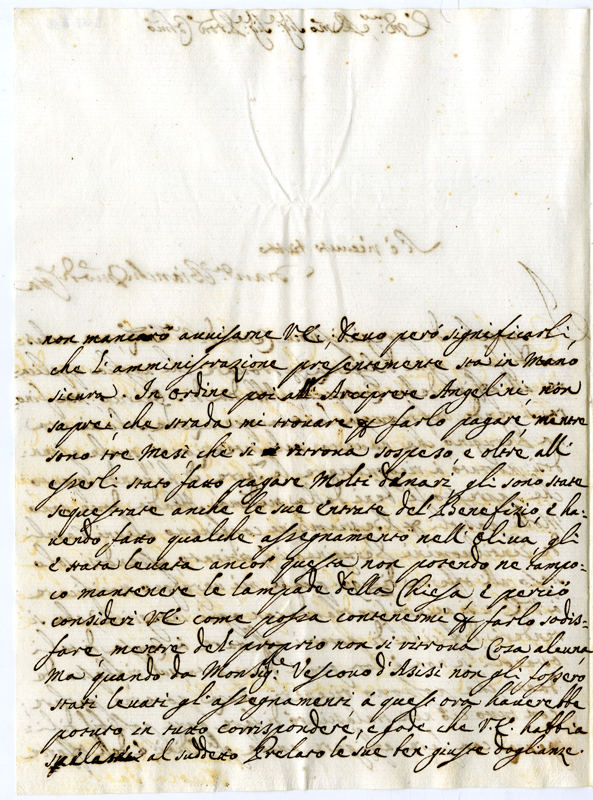 non mancarò auuisarne V.S., deuo però significarli,
che l'amministrazione presentemente stà in mano
sicura. In ordine poi all' Arciprete Angelini, non
saprei che strada mi trouare p farlo pagare, mentre
sono tre Mesi che si ritroua sospeso, e oltre all'
esserli stato fatto pagare Molti denari, gli sono state
sequestrate anche le sue Entrate del Benefizio, e ha-
uendo fatto qualche assegnamento nell' Oliua, gli
è stata leuata ancor questa non potendo ne tampo-
co mantenere le lampade della Chiesa, e perciò
consideri V.S. come possa contenermi p farlo sodis-
fare, mentre del proprio non si ritroua Coza alcuna,
Ma quando da Monsig.r Vescouo d'Asisi non gli fossero
stati leuati gl'assegnamenti à quest'ora hauerebbe
potuto in tutto corrispondere, e che V.S. habbia
al suddetto Prelato le sue ben giuste doglianze.